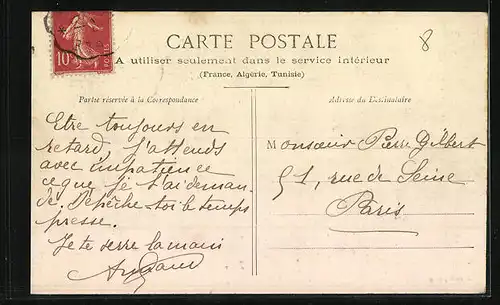 8
10
POSTES
CARTE POSTALE
A utiliser seulement dans le service intérieur
(France, Algérie, Tunisie)
Partie réservée à la Correspondance
Adresse du Destinataire
Etre toujours en
retard, j'attends
avec impatience
ce que je t'ai deman-
dé. Dépêche-toi le temps
presse.
Je te serre la main
Monsieur Pierre Gilbert
51, rue de Seine
Paris